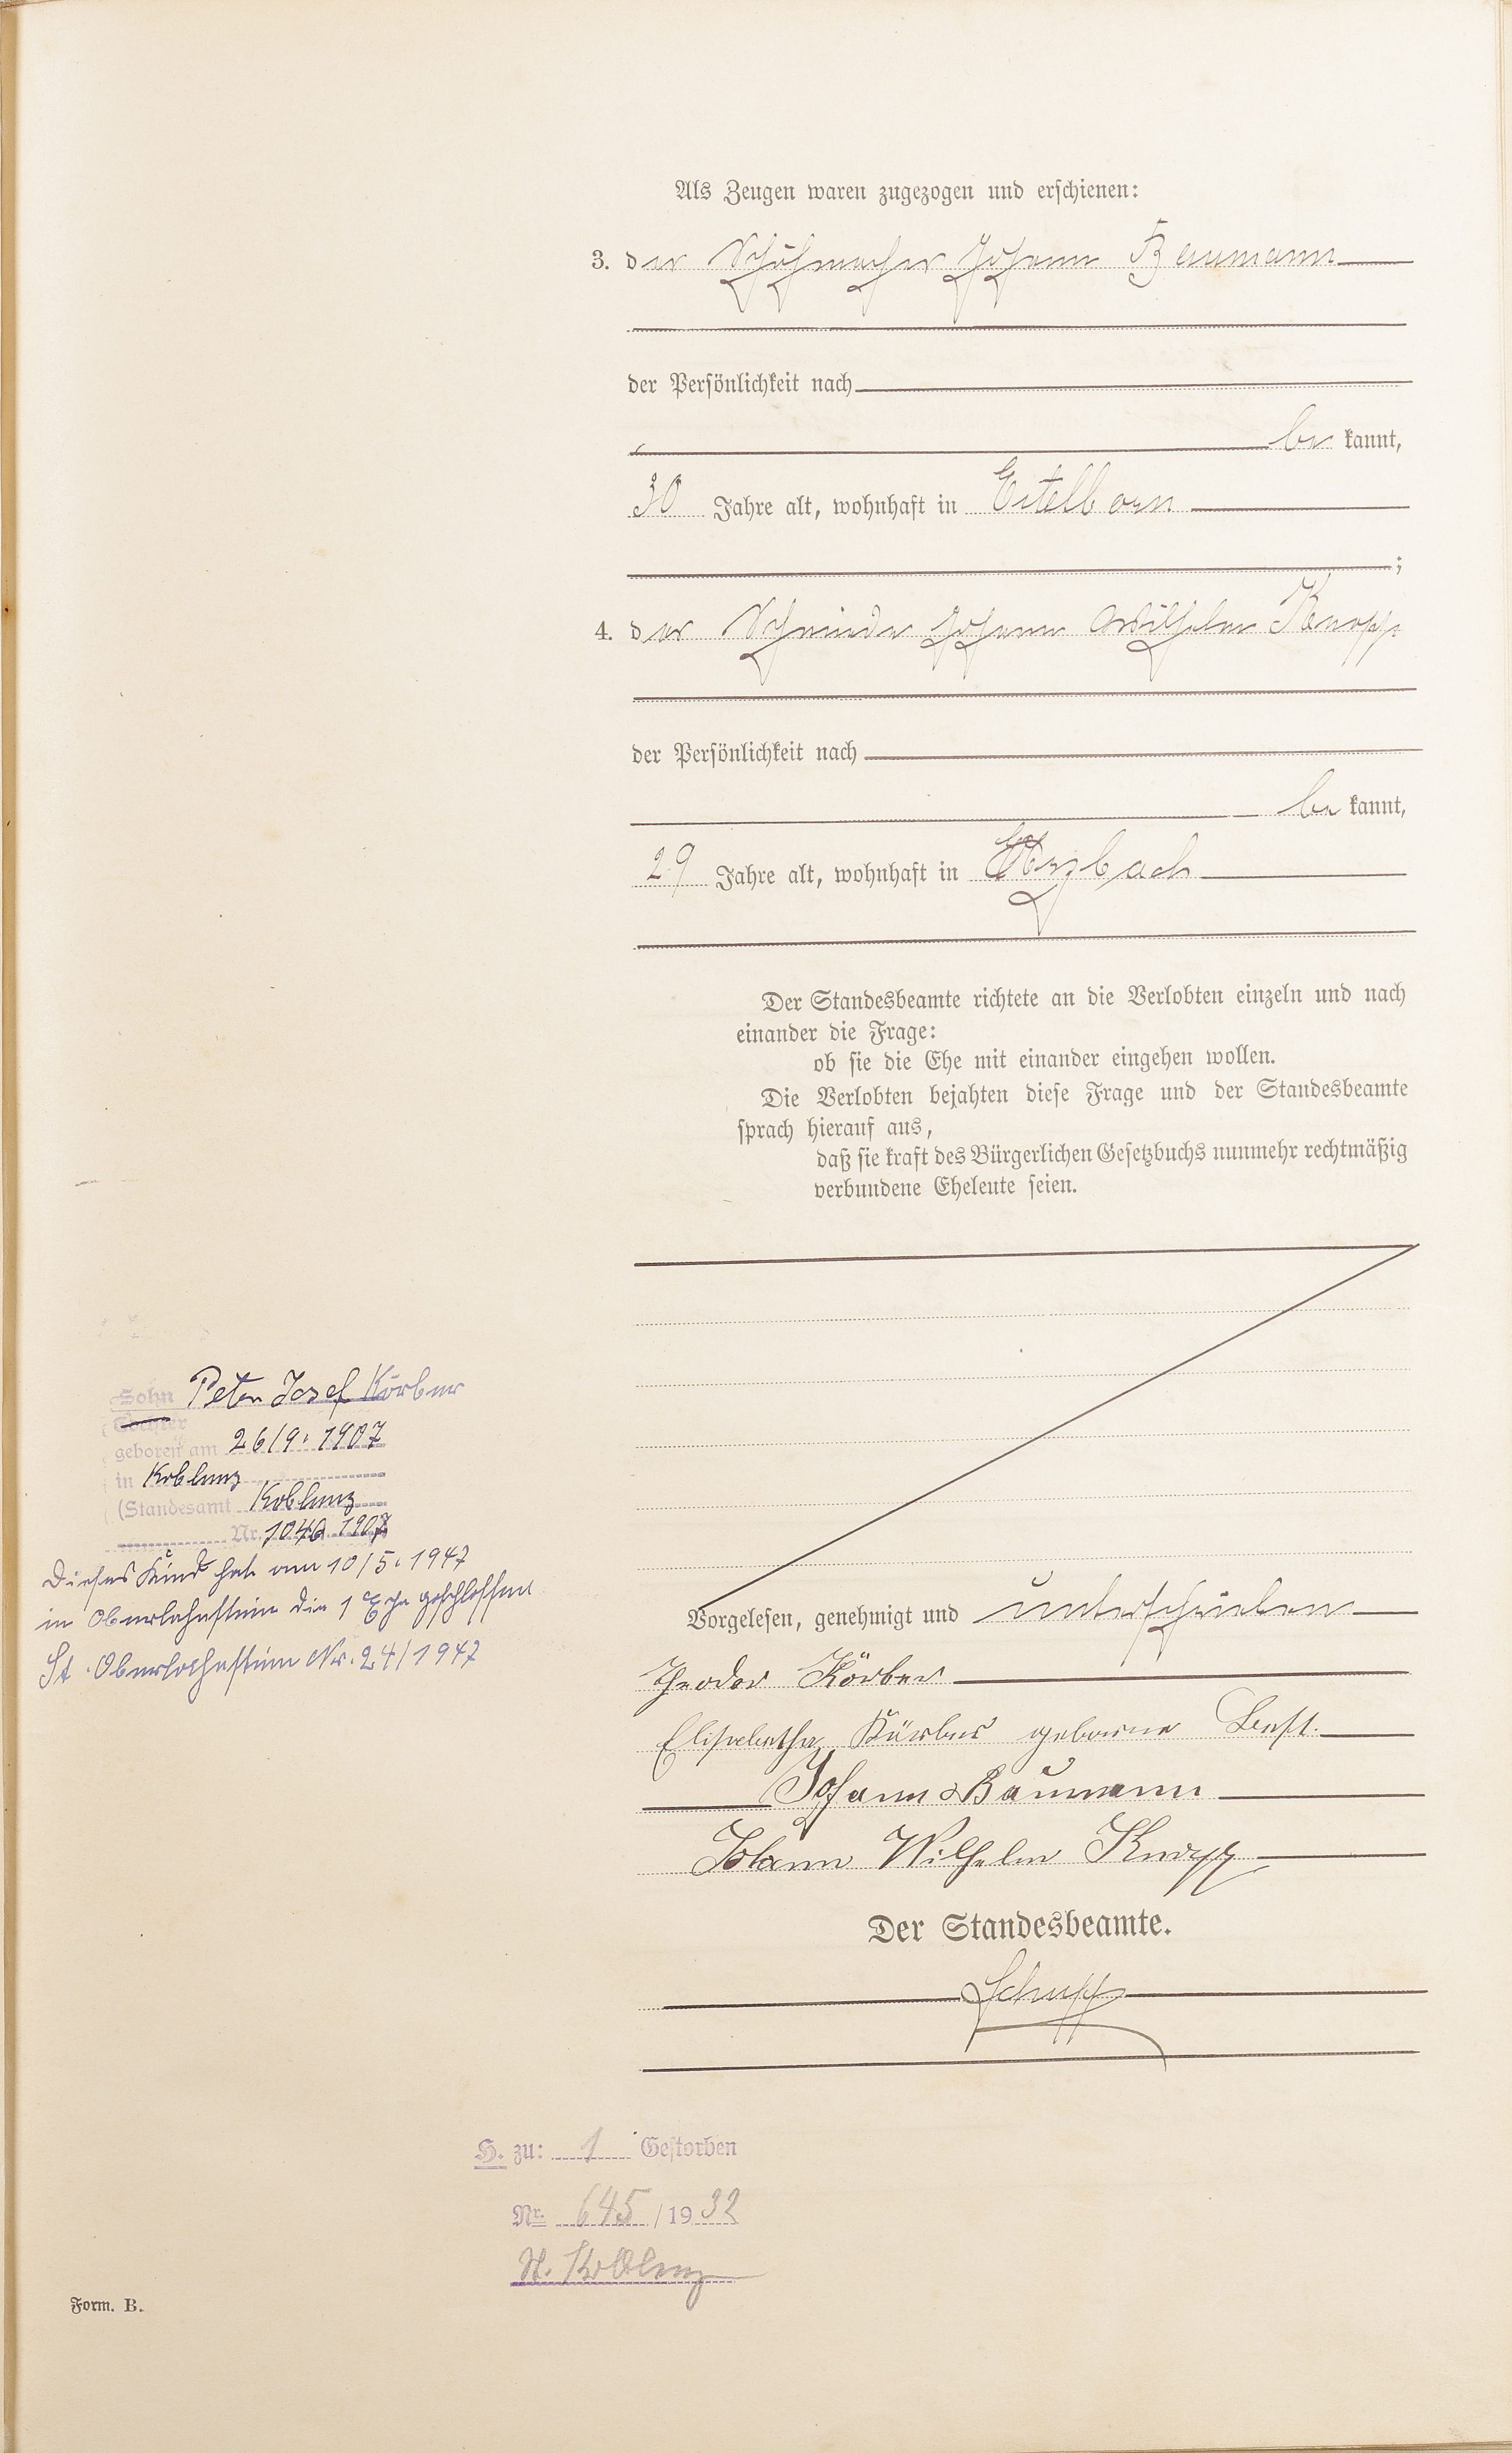 Als Zeugen waren zugezogen und erschienen:
3. der Schuhmacher Johann Baumann
der Persönlichkeit nach
be kannt,
30 Jahre alt, wohnhaft in Eitelborn
;
4. der Schmied Johann Wilhelm Knopp
der Persönlichkeit nach
be kannt,
29 Jahre alt, wohnhaft in Arzbach
Der Standesbeamte richtete an die Verlobten einzeln und nach
einander die Frage:
ob sie die Ehe mit einander eingehen wollen.
Die Verlobten bejahten diese Frage und der Standesbeamte
sprach hierauf aus,
daß sie kraft des Bürgerlichen Gesetzbuchs nunmehr rechtmäßig
verbundene Eheleute seien.
Sohn Peter Josef Körber
Tochter
geboren am 26/9. 1907
in Koblenz
(Standesamt Koblenz
Nr. 1046 1907
Dieses Kind hat am 10/5. 1947
in Oberlahnstein die 1 Ehe geschlossen
St. Oberlahnstein Nr. 24/1947
Vorgelesen, genehmigt und unterschrieben
Theodor Körber
Elisabetha Körber geborne
Johann Baumann
Johann Wilhelm Knopp
Der Standesbeamte.
Schupp
H. zu: 1 Gestorben
Nr. 645 / 1932
St. Koblenz
Form. B.